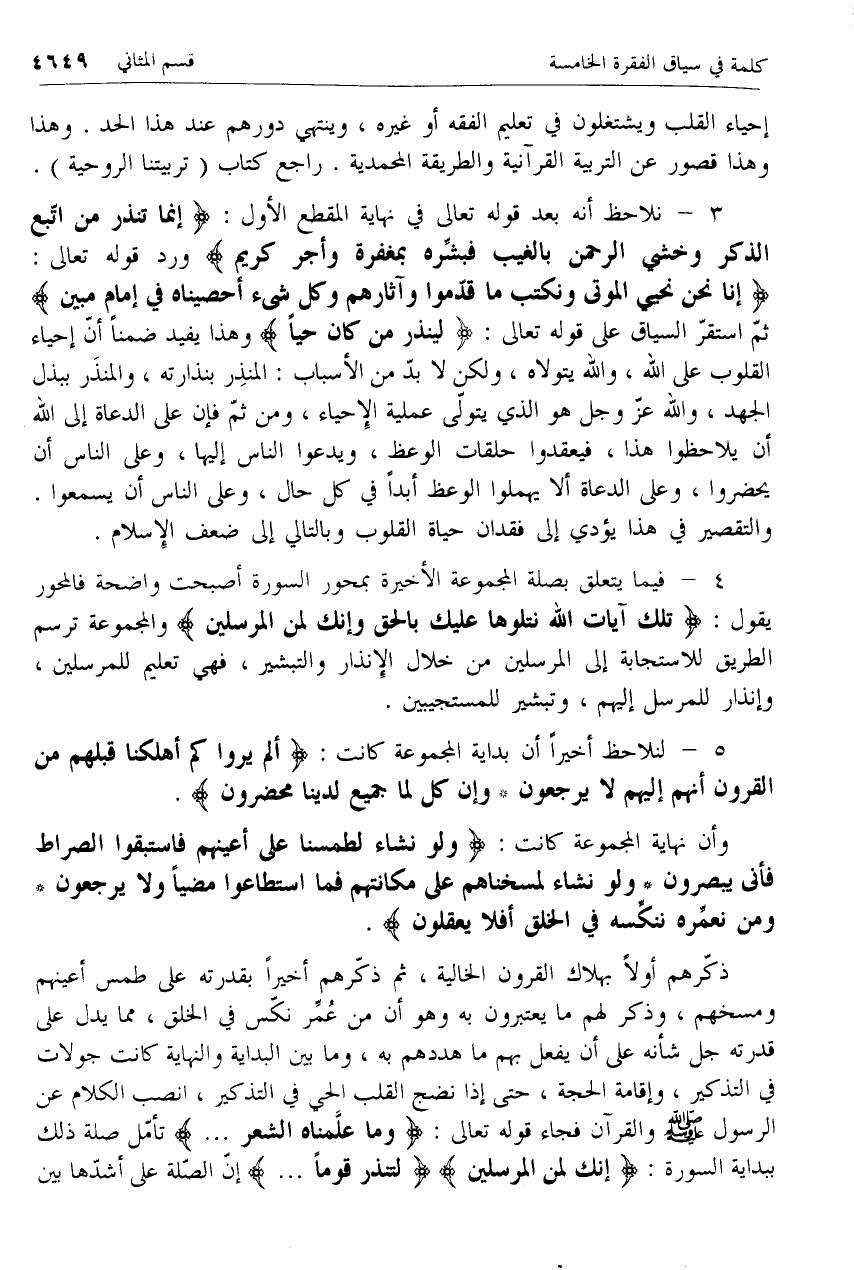 كلمة في سياق الفقرة الخامسة قسم المثاني ٤٦٤٩
إحياء القلب ويشتغلون في تعليم الفقه أو غيره ، وينتهي دورهم عند هذا الحد . وهذا
وهذا قصور عن التربية القرآنية والطريقة المحمدية . راجع كتاب ( تربيتنا الروحية ) .
٣ – نلاحظ أنه بعد قوله تعالى في نهاية المقطع الأول : ﴿ إنما تنذر من اتّبع
الذكر وخشي الرحمن بالغيب فبشّره بمغفرة وأجر كريم ﴾ ورد قوله تعالى :
﴿ إنا نحن نحيي الموتى ونكتب ما قدّموا وآثارهم وكل شيء أحصيناه في إمام مبين ﴾
ثمّ استقرّ السياق على قوله تعالى : ﴿ لينذر من كان حياً ﴾ وهذا يفيد ضمناً أنّ إحياء
القلوب على الله ، والله يتولاه ، ولكن لا بدّ من الأسباب : المنذِر بنذارته ، والمنذَر ببذل
الجهد ، والله عزّ وجل هو الذي يتولّى عملية الإحياء ، ومن ثمّ فإن على الدعاة إلى الله
أن يلاحظوا هذا ، فيعقدوا حلقات الوعظ ، ويدعوا الناس إليها ، وعلى الناس أن
يحضروا ، وعلى الدعاة ألا يهملوا الوعظ أبداً في كل حال ، وعلى الناس أن يسمعوا .
والتقصير في هذا يؤدي إلى فقدان حياة القلوب وبالتالي إلى ضعف الإسلام .
٤ – فيما يتعلق بصلة المجموعة الأخيرة بمحور السورة أصبحت واضحة فالمحور
يقول : ﴿ تلك آيات الله نتلوها عليك بالحق وإنك لمن المرسلين ﴾ والمجموعة ترسم
الطريق للاستجابة إلى المرسلين من خلال الإنذار والتبشير ، فهي تعليم للمرسلين ،
وإنذار للمرسل إليهم ، وتبشير للمستجيبين .
٥ – لنلاحظ أخيراً أن بداية المجموعة كانت : ﴿ ألم يروا كم أهلكنا قبلهم من
القرون أنهم إليهم لا يرجعون * وإن كل لما جميع لدينا محضرون ﴾ .
وأن نهاية المجموعة كانت : ﴿ ولو نشاء لطمسنا على أعينهم فاستبقوا الصراط
فأنى يبصرون * ولو نشاء لمسخناهم على مكانتهم فما استطاعوا مضياً ولا يرجعون *
ومن نعمِّره ننكِّسه في الخلق أفلا يعقلون ﴾ .
ذكّرهم أولاً بهلاك القرون الخالية ، ثم ذكّرهم أخيراً بقدرته على طمس أعينهم
ومسخهم ، وذكر لهم ما يعتبرون به وهو أن من عُمِّر نكّس في الخلق ، مما يدل على
قدرته جل شأنه على أن يفعل بهم ما هددهم به ، وما بين البداية والنهاية كانت جولات
في التذكير ، وإقامة الحجة ، حتى إذا نضج القلب الحي في التذكير ، انصب الكلام عن
الرسول ﷺ والقرآن فجاء قوله تعالى : ﴿ وما علَّمناه الشعر ... ﴾ تأمّل صلة ذلك
ببداية السورة : ﴿ إنك لمن المرسلين ﴾ ﴿ لتنذر قوماً ... ﴾ إنّ الصّلة على أشدّها بين